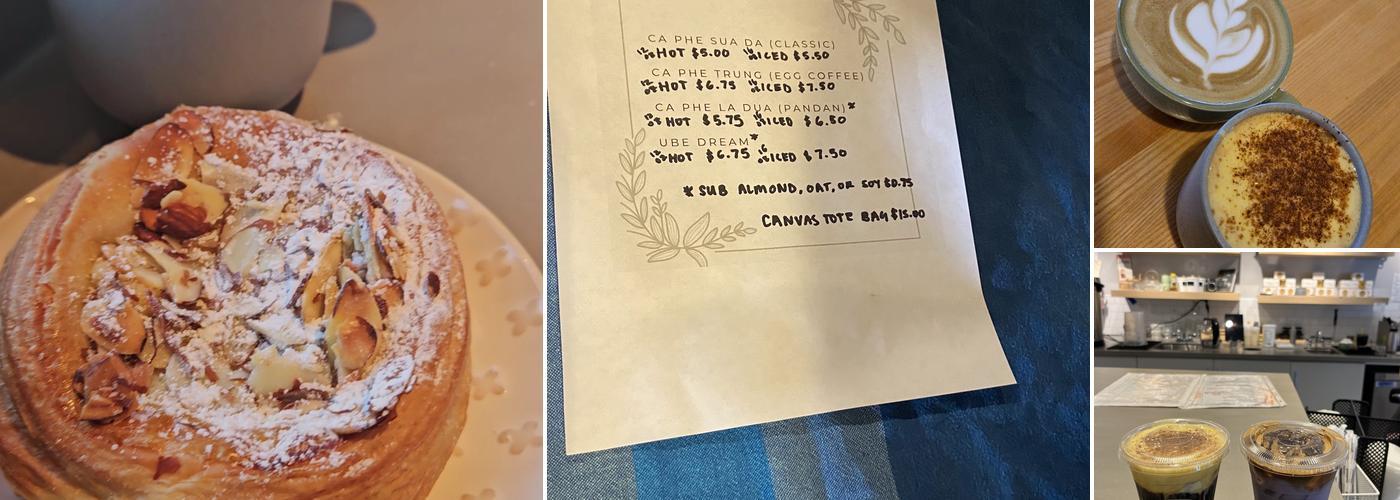 CA PHE SUA DA (CLASSIC)
HOT $5.00 ICED $5.50
CA PHE TRUNG (EGG COFFEE)
HOT $6.75 ICED $7.50
CA PHE LA DUA (PANDAN)*
HOT $5.75 ICED $6.50
UBE DREAM*
HOT $6.75 ICED $7.50
* SUB ALMOND, OAT, OR SOY $0.75
CANVAS TOTE BAG $15.00